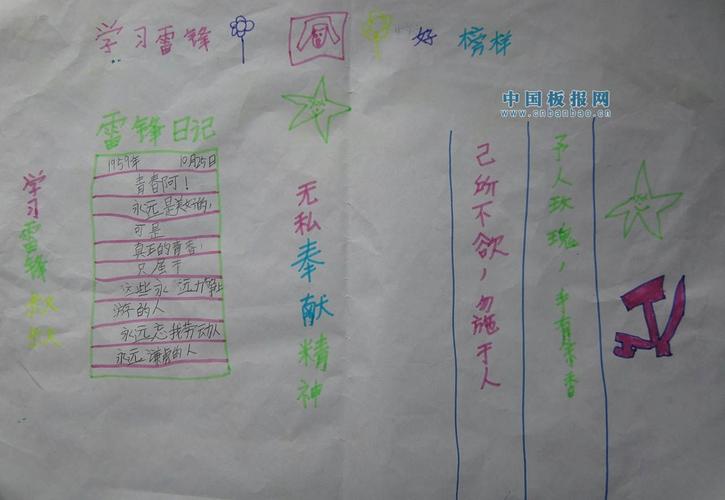 学习雷锋 好 榜样
中国板报网
www.cnbanbao.cn
雷锋日记
1959年 10月25日
青春阿！
永远是美好的，
可是
真正的青春，
只属于
这些永远力争上
游的人
永远忘我劳动人
永远谦虚的人
学习雷锋叔叔
无私奉献精神
己所不欲，勿施于人
予人玫瑰，手有余香